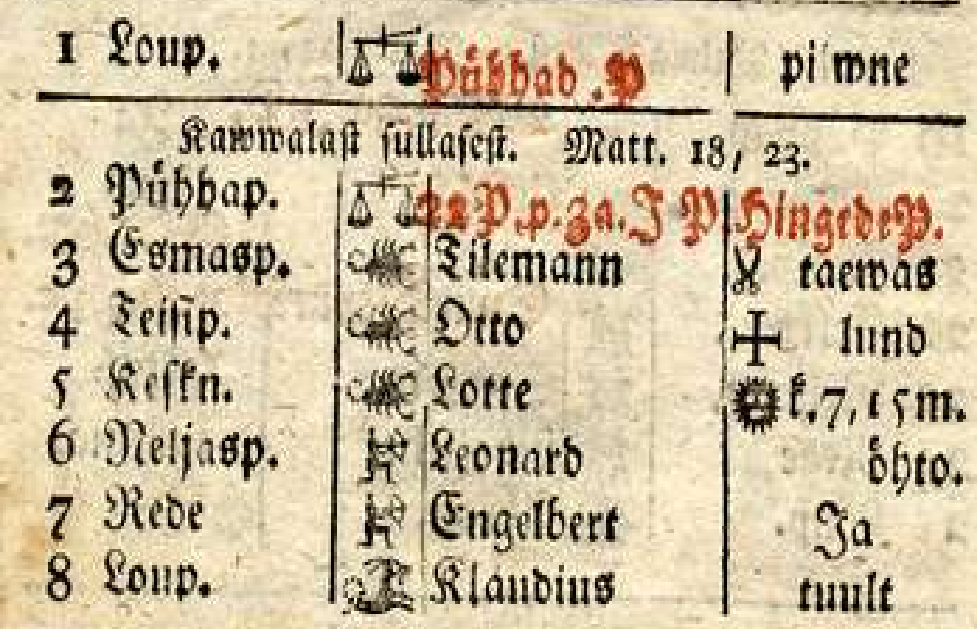 1 Loup. Pühhad .P pilwne
Kawwalast sullasest. Matt. 18, 23.
2 Pühhap. 22 P. p. 3a. J P. Hingede P.
3 Esmasp. Tilemann taewas
4 Teisip. Otto lund
5 Keskn. Lotte k. 7, 15 m.
6 Neljasp. Leonard öhto.
7 Rede Engelbert Ja
8 Loup. Klaudius tuult